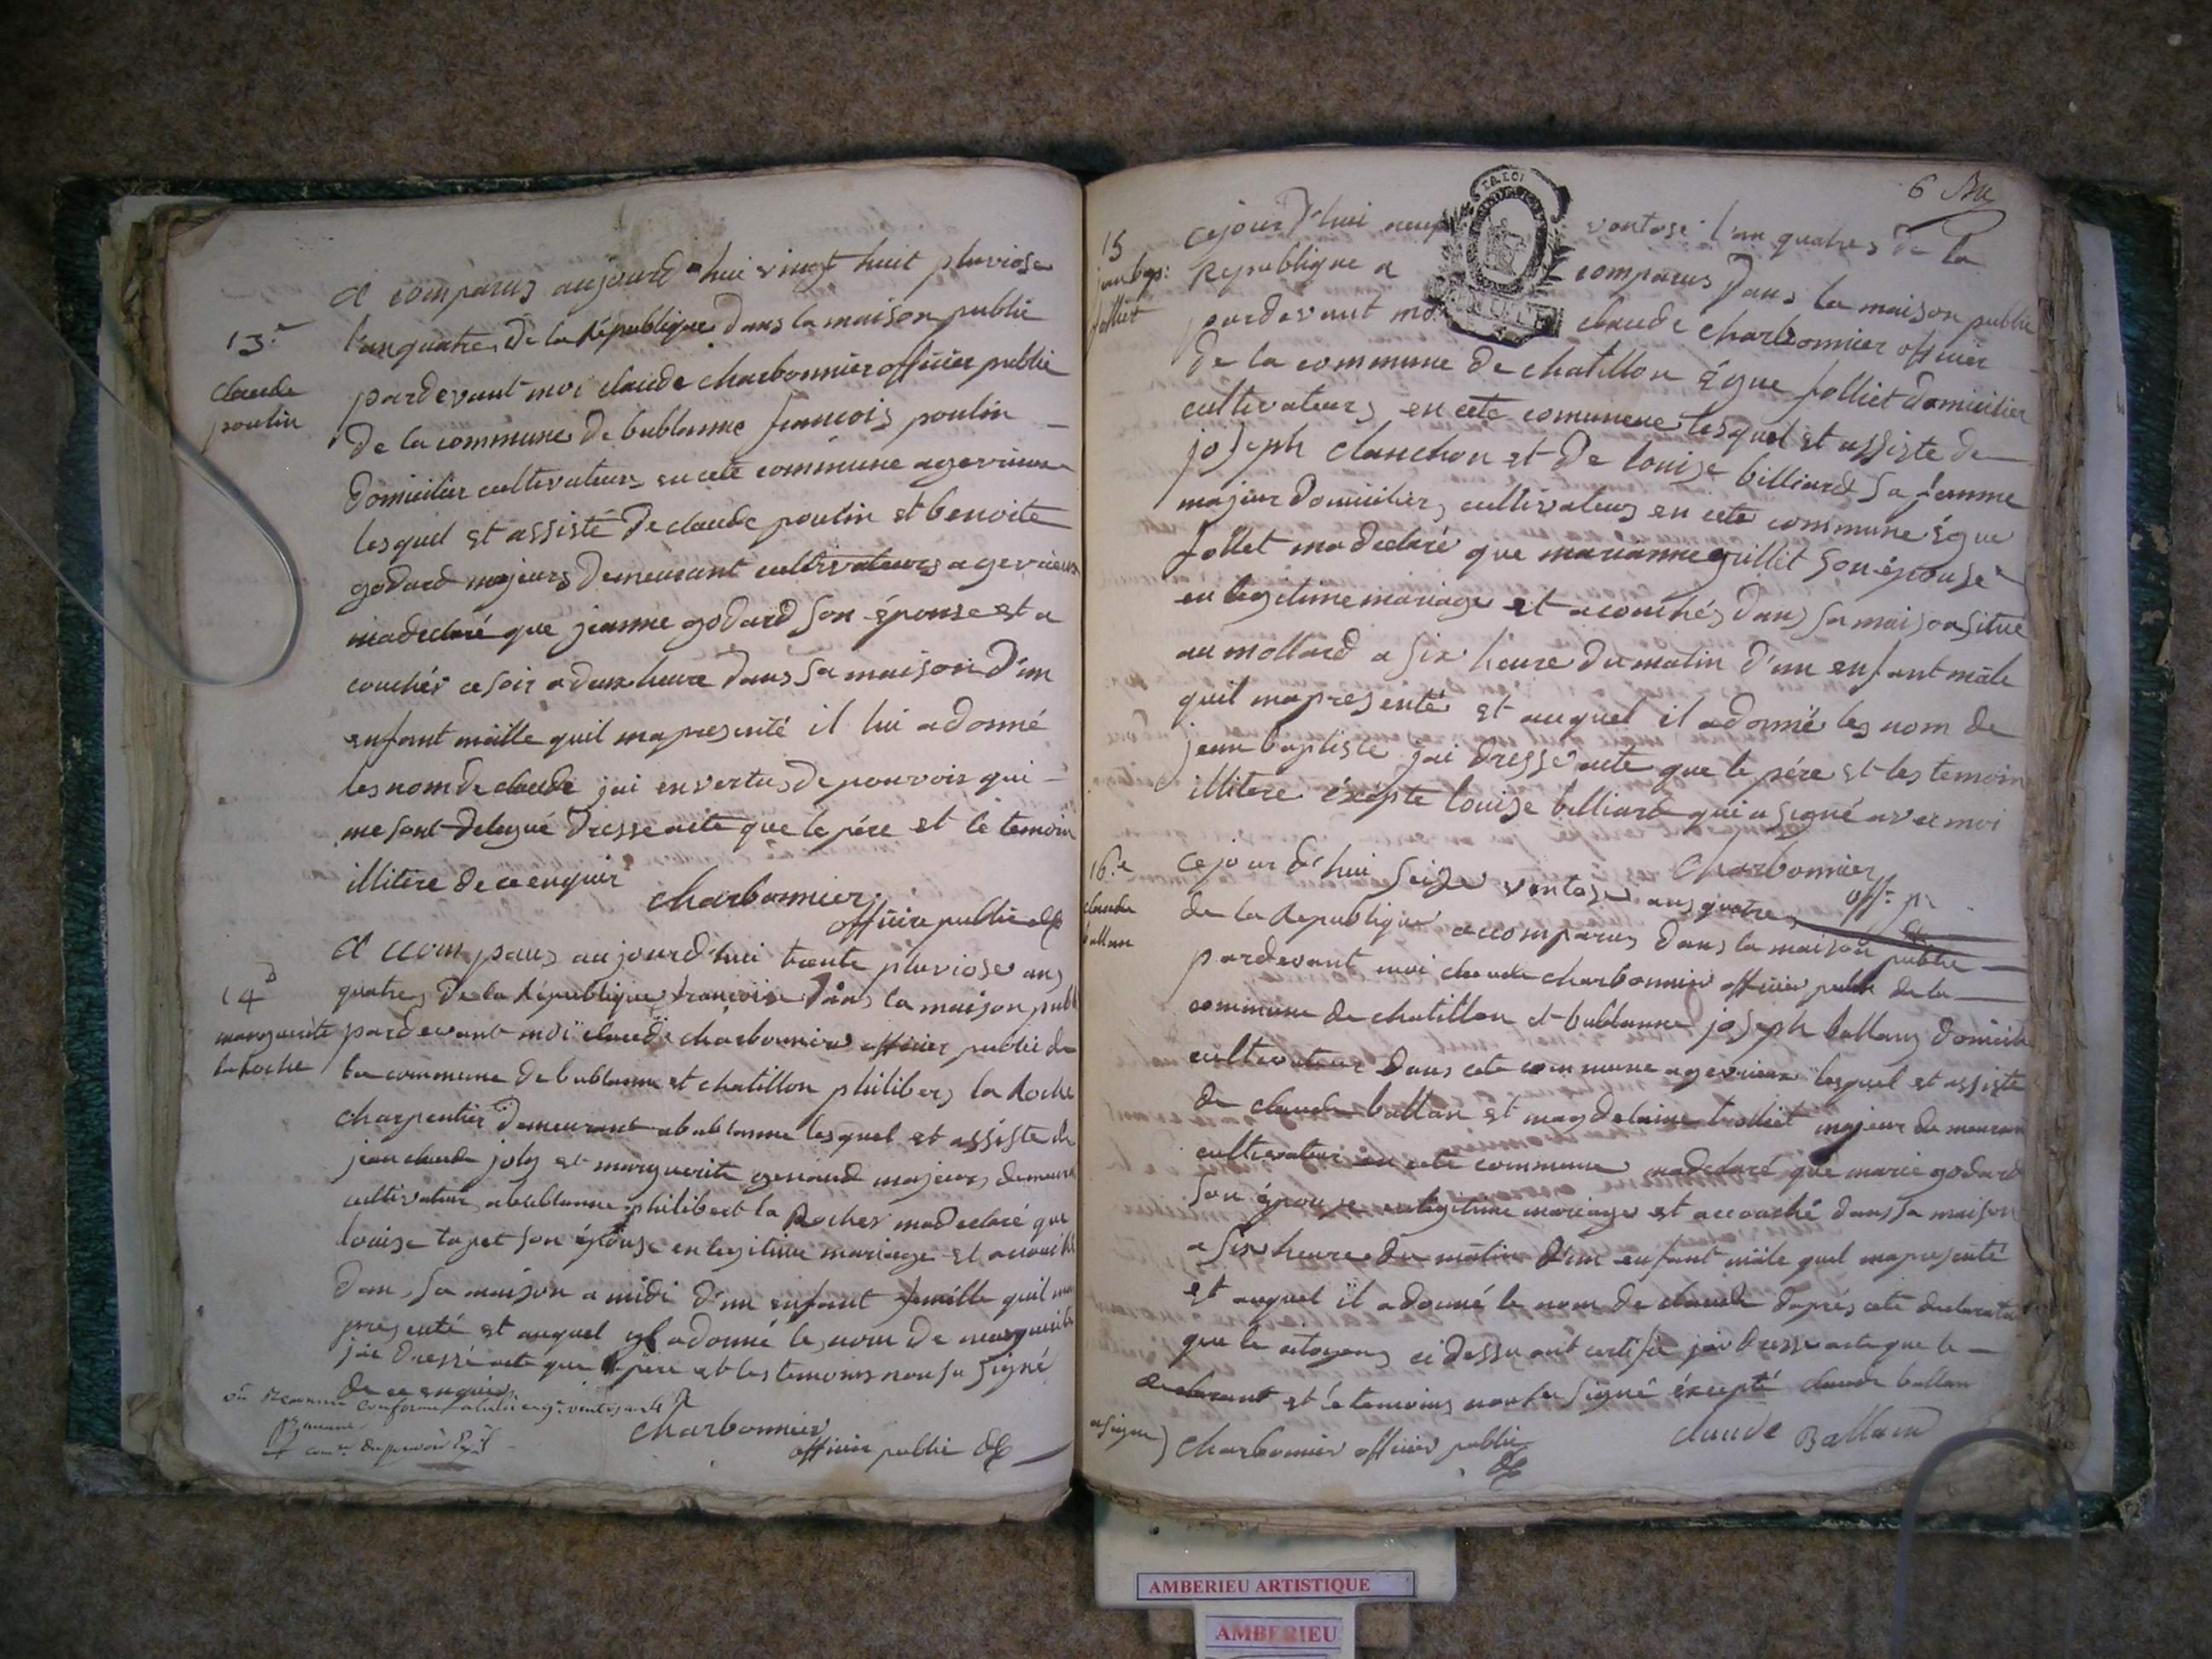 13.e
claude
poulin
A comparus aujourd'hui vingt huit pluviose
l'an quatres De la Républiques Dans la maison public
pardevant moi claude charbonnier officier public
De la commune De bublanne francois poulin
Domicilier cultivateurs en cete commune a gevrieux
lesquel et assisté De claude poulin et benoite
godard majeurs Demeurant cultivateurs a gevrieux
ma declaré que jeanne godard son épouse et a
couchér ce soir a deux heure Dans sa maison D'un
enfant mâlle quil ma presenté il lui a donné
les nom de claude jai en vertus de pouvoir qui
me sont delegué Dresse acte que le père et le temoin
illitere de ce enquir
charbonnier
officire public
14
marguerite
la roche
A comparus aujourd'hui trente pluviose ans
quatres De la République francoise Dans la maison publ
pardevant moi claude charbonnier officier public de
la commune De bublanne et chatillon philibers la Roche
charpentier Demeurant a bublanne lesquel et assiste de
jean claude joly et marguerite genaud majeurs demeura
cultivateur a bublanne philibert la Rocher ma declaré que
louise tapet son épouse en legitime mariage et acouché
Dans sa maison a midi D'un enfant femille quil ma
presenté et auquel il a donné le nom De marguerite
jai Dressé acte que le père et les temoins non su signé
de ce enquir
charbonnier
officier public
6
15
jean bap:
folliet
cejourd'hui ventose l'an quatres De la
LA LOI
Republique a comparus Dans la maison public
pardevant moi claude charbonnier officier
De la commune De chatillon folliet Domicilier
cultivateurs en cete comunene lesquel et assiste de
joseph clanchon et De louise billiard sa femme
majeur Domicilier cultivateurs en cete commune
follet ma declaré que marianne grillet son épouse
en legitime mariage et a couchés Dans sa maison situé
au mollard a six heure Du matin D'un enfant mâle
quil ma presenté et auquel il a donné les nom de
jean baptiste jai Dressé acte que le père et les temoin
illitere éxcepte louise billiard qui a signé avec moi
charbonnier
off. p.
16.e
claude
ballan
cejour d'hui Seize ventose ans quatres
de la Republique a comparus Dans la maison public
pardevant moi claude charbonnier officier public de la
commune de chatillon et bublanne joseph ballans domicile
cultivateur Dans cete commune a gevrieux lesquel et assiste
de claude ballan et magdelaine trolliet majeur demeurant
cultivateur en cete commune ma declaré que marie godard
son épouse en legitime mariage et accouché dans sa maison
a six heure du matin D'un enfant mâle quil ma presenté
et auquel il a donné le nom de claude daprés cete declarati
que le citoyens ci dessu ont certifié jai Dresse acte que le
declarant et lé temoins nont su signé éxcepté claude ballan
a signé charbonnier officier public
claude Ballan
AMBERIEU ARTISTIQUE
AMBERIEU